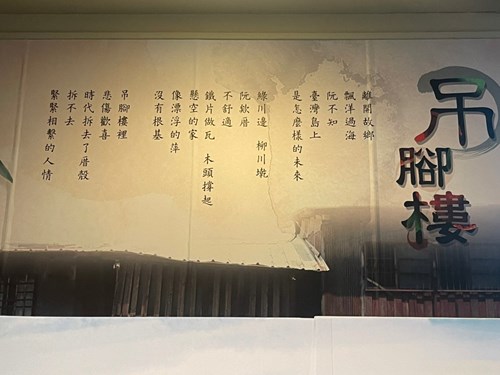 吊腳樓
離開故鄉
飄洋過海
阮不知
臺灣島上
是怎麼樣的未來
綠川邊 柳川墘
阮欸厝
不舒適
鐵片做瓦 木頭撐起
懸空的家
像漂浮的萍
沒有根基
吊腳樓裡
悲傷歡喜
時代拆去了厝殼
拆不去
緊緊相繫的人情